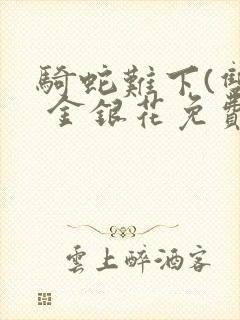 騎蛇難下(雙
金銀花免費
雲上醉酒客